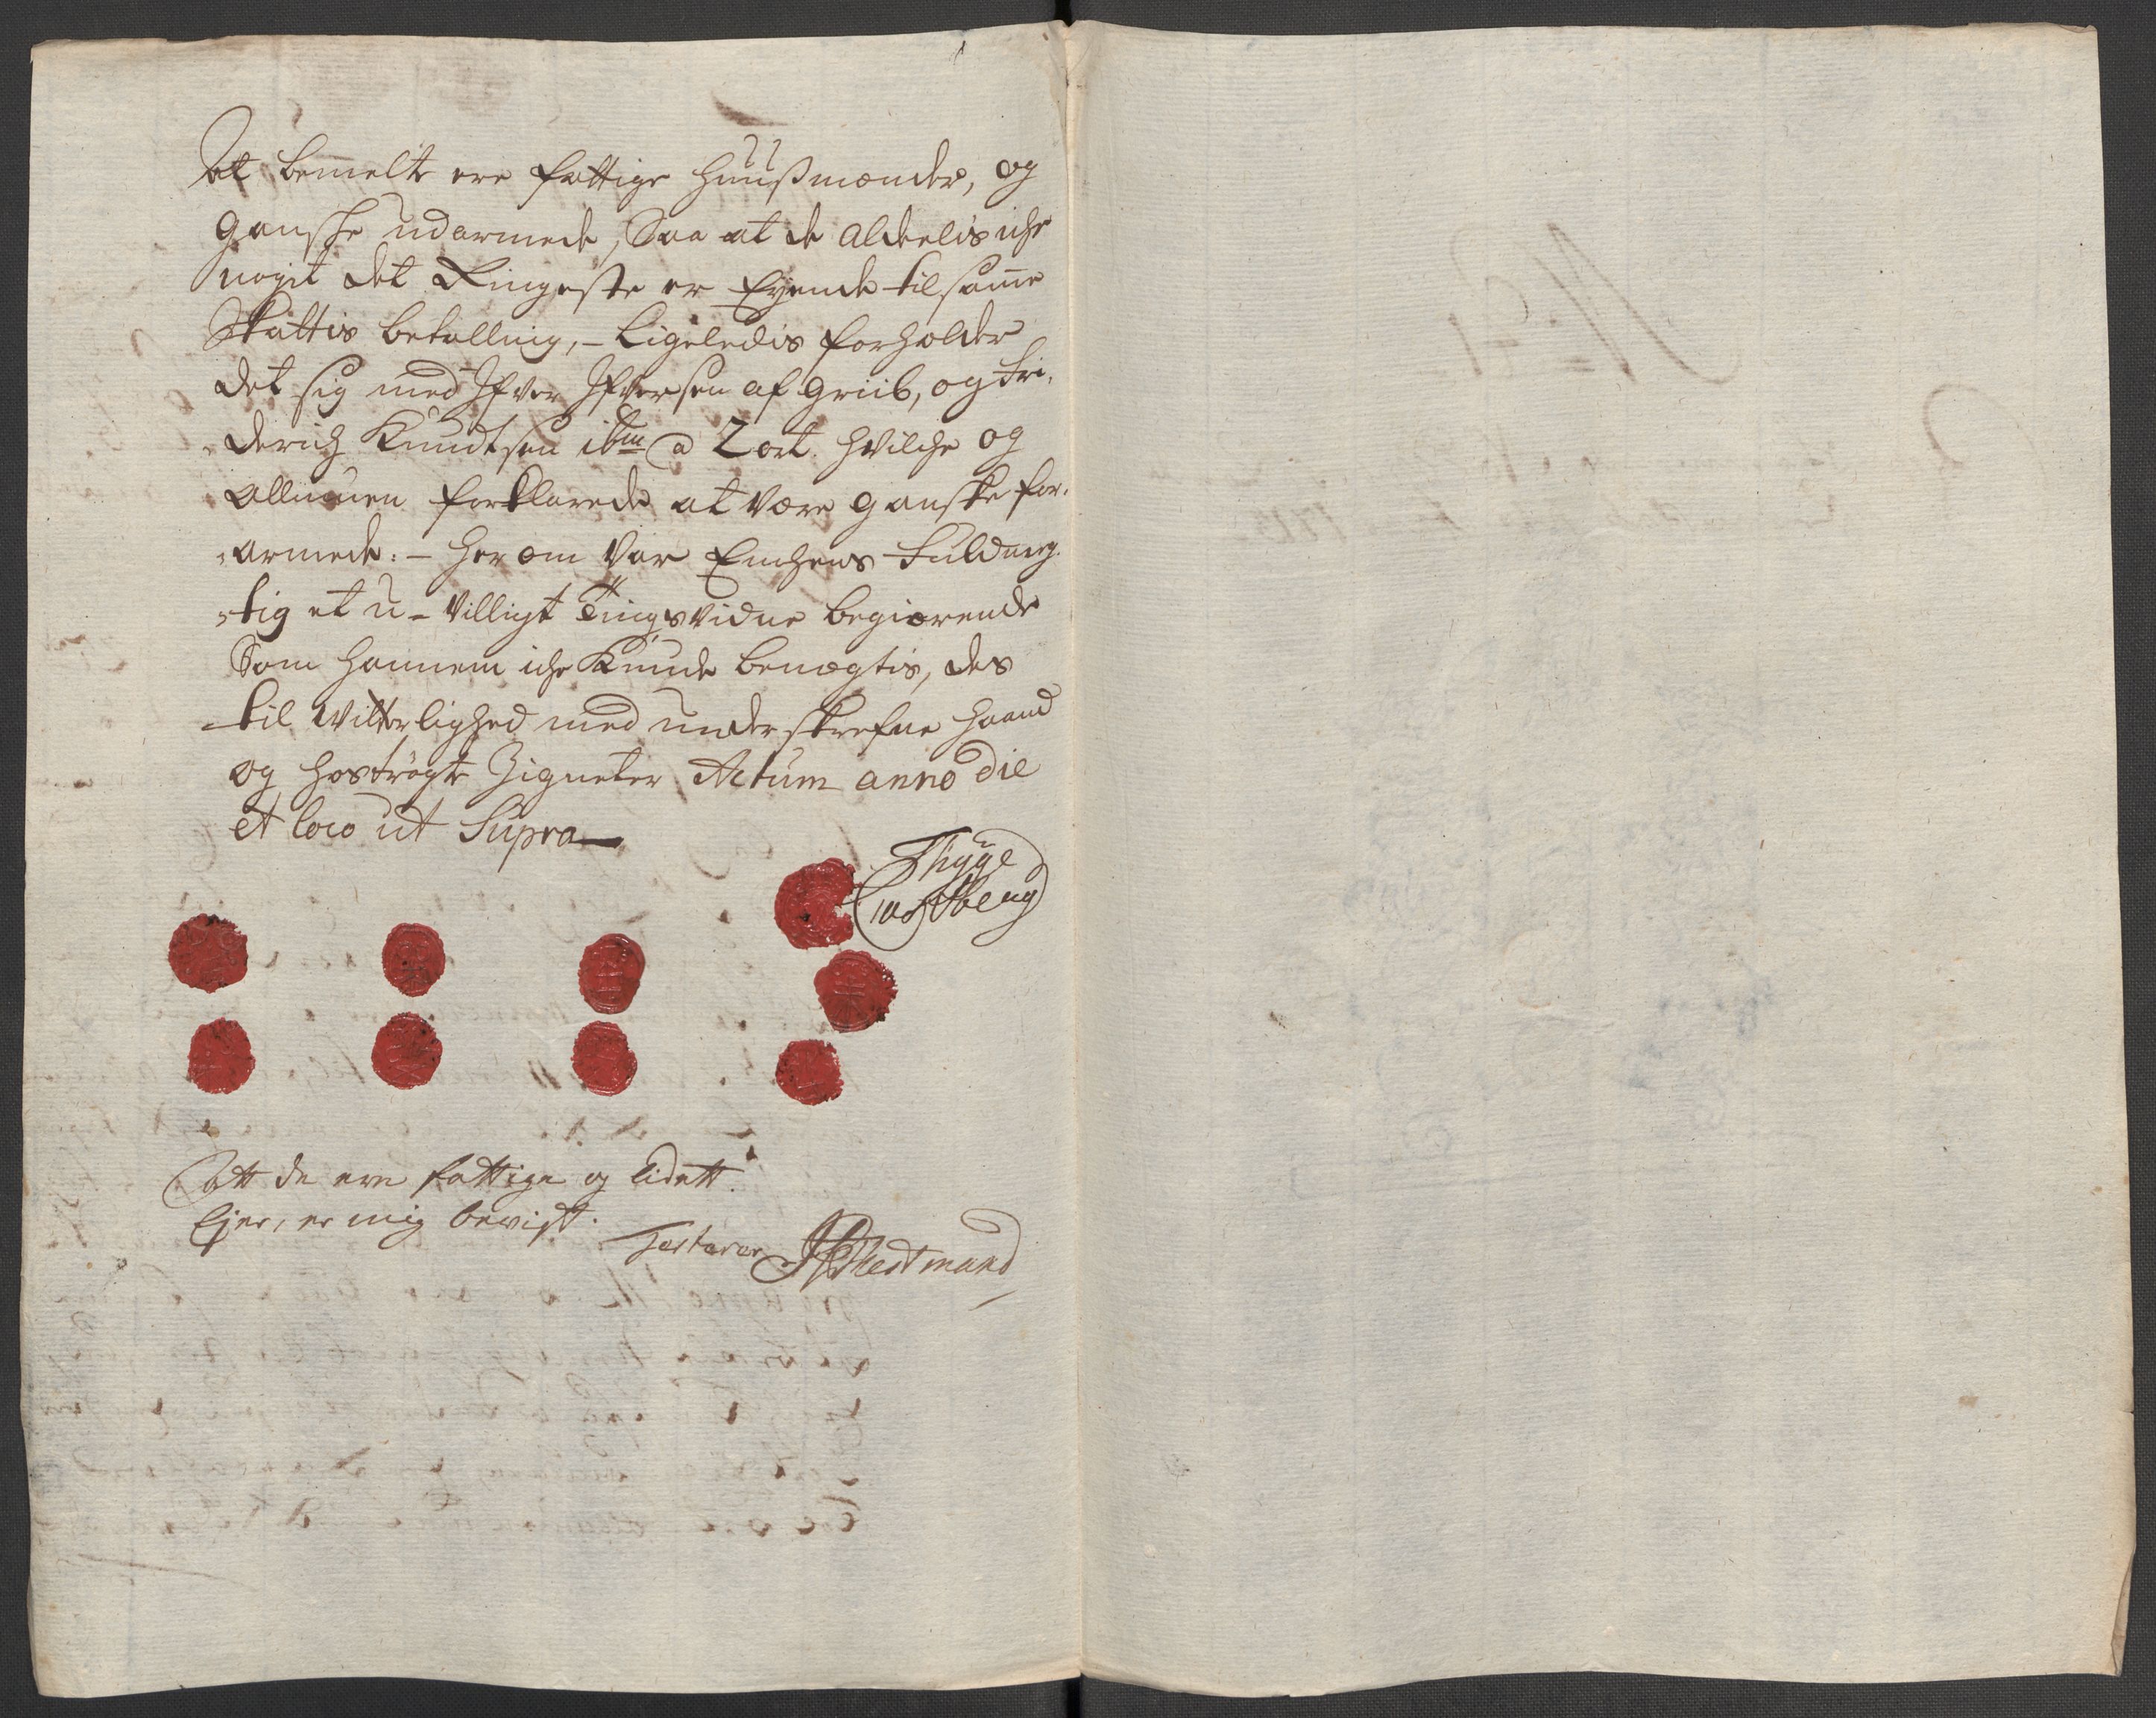 At bemelte ere fattige Huusmænder, og
gansche udarmede, Saa at de aldeelis iche
noget det Ringeste er Eyende til samme
Skattis betalling, - Ligeledis forholder
det sig med Ifver Ifversen af Griib, og Fri-
derich Knudtsen ibm a 2 ort. hvilche og
Allmuen forklarede at være ganske for-
armede: - Herom var Enchens Fuldmeg-
tig et u-villigt Tingsvidne begiærende
Som hannem iche kunde benegtis, des
til vitterlighed med underskrefne haand
og hoströgte Zigneter, Actum anno die
et loco ut Supra
Thyge
Att de ere fattige og lidett
Ejer, er mig bevist.
Testerer
No